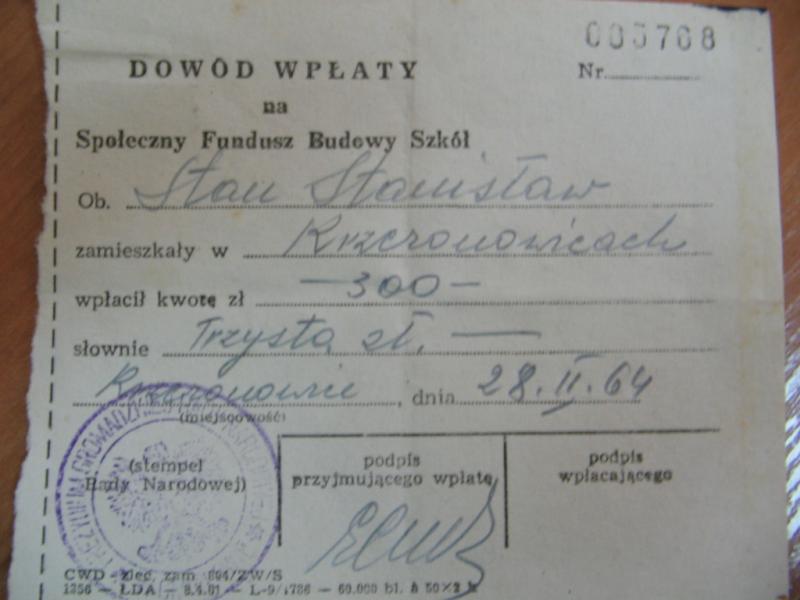 005708
DOWÓD WPŁATY
Nr
na
Społeczny Fundusz Budowy Szkół
Ob. Stan Stanisław
zamieszkały w Krzczonowicach
wpłacił kwotę zł —300—
słownie Trzysta zł. —
Krzczonowice, dnia 28.II.64
(miejscowość)
(stempel
Rady Narodowej)
podpis
przyjmującego wpłatę
podpis
wpłacającego
CWD - zlec. zam 804/ZW/S
1356 — ŁDA — 8.4.61 — L-9/1786 — 60.000 bl. à 50×2 k